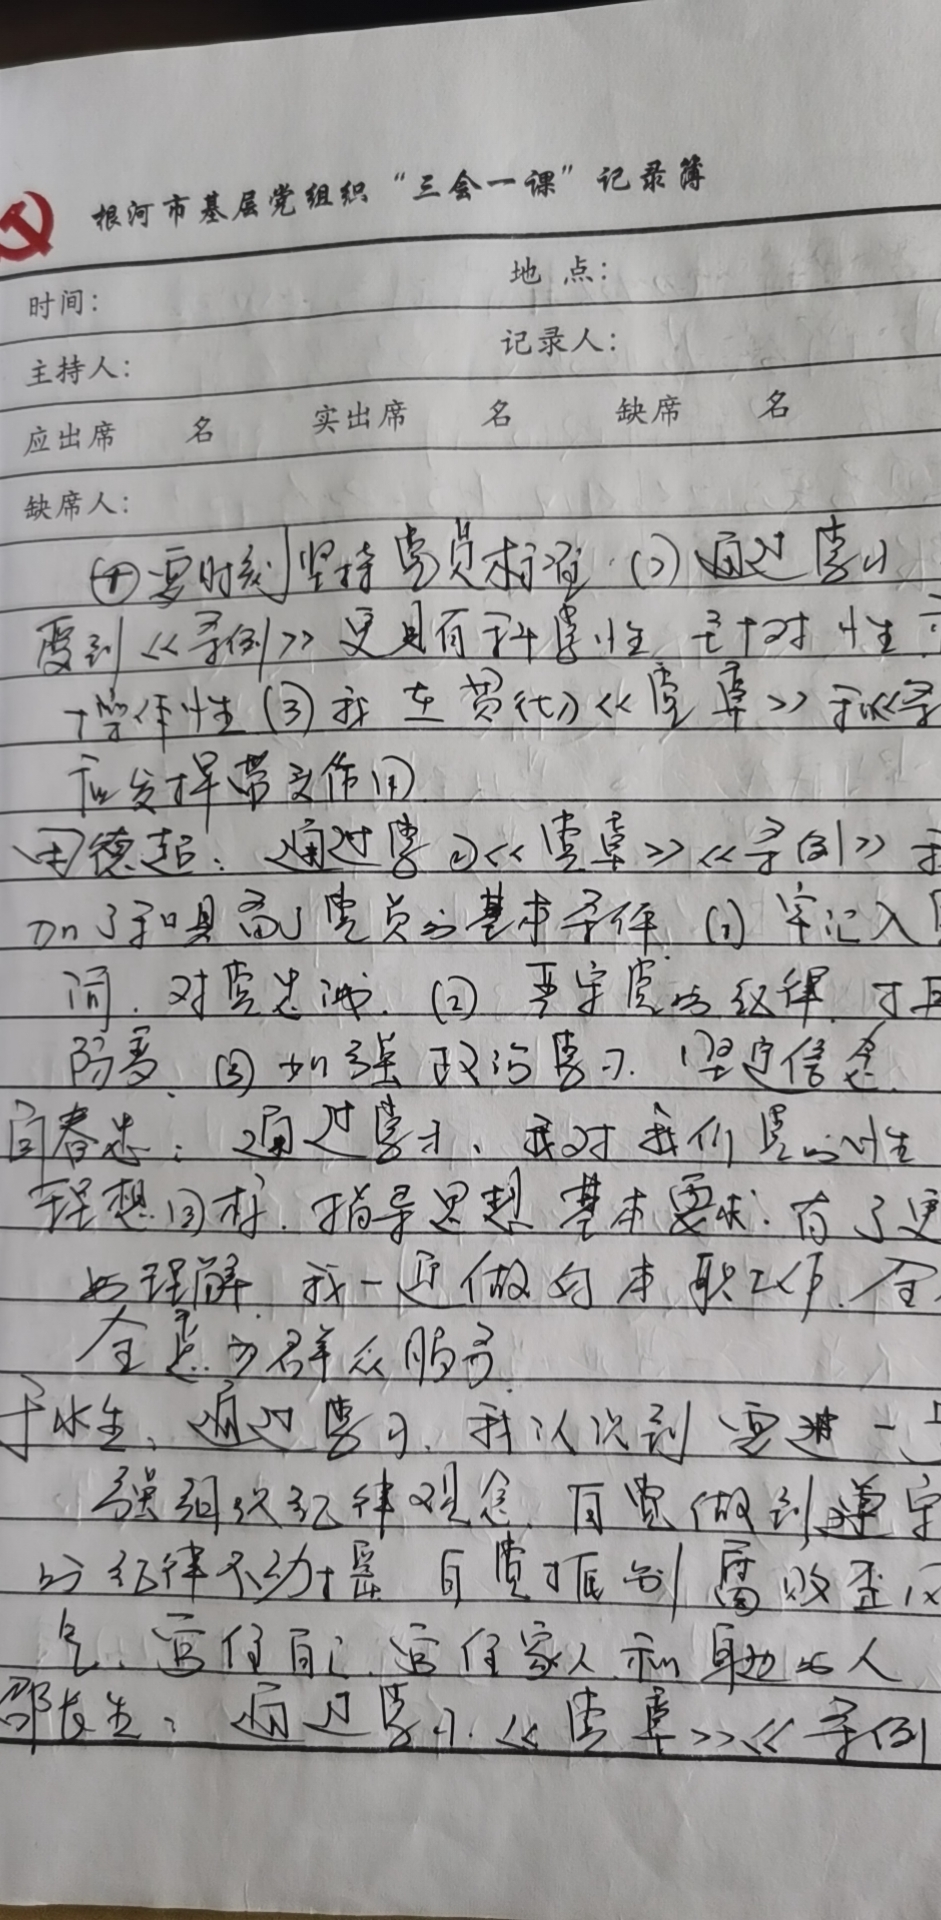 根河市基层党组织“三会一课”记录簿
时间： 地 点：
主持人： 记录人：
应出席 名 实出席 名 缺席 名
缺席人：
要时刻坚持党员标准 (2) 通过学习
到《条例》更具有科学性 针对性
操作性 (3) 我在贯彻《党章》和《条
应发挥带头作用
田德超：通过学习《党章》《条例》
加了 党员的基本条件 (1) 牢记入
词，对党忠诚. (2) 严守党的纪律，
防变、(3) 加强政治学习，坚定信念.
闫春忠：通过学习、我对我们党的性
理想目标，指导思想 基本要求，有了更
的理解 我一定做好本职工作，全
全意为群众服务
于水生、通过学习，我认识到要进一
强组织纪律观念，自觉做到遵守
的纪律不动摇 自觉抵制腐败歪
气、管住自己、管住家人和身边的人
邵长生：通过学习.《党章》《条例